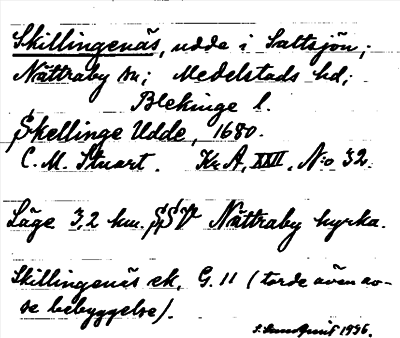 Skillingenäs, udde i Saltsjön;
Nättraby sn; Medelstads hd;
Blekinge l.
Skellinge Udde, 1680.
C. M. Stuart. Kr. A, XXII, No 32.
Läge 3,2 km. SSV Nättraby kyrka.
Skillingenäs ek, G. 11 (torde även av-
se bebyggelse).
1946.